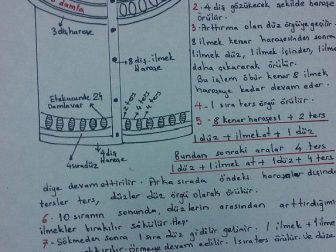 damla
3 diş haraşo
8 diş. ilmek
Haraşo
4 ters
4 ters
4 ters
Eteklerinde 24
Damla var
4 sıra düz
4 diş
Haraşo
2. 4 diş gözükecek şekilde haraşo
örülür.
3. Arttırma olan düz örgüye geçilir.
8 ilmek kenar haraşosından sonra
ilmek düz, 1 ilmek içinden, 1 ilmek
daha çıkararak örülür.
Bu işlem öbür kenar 8 ilmek
haraşoya kadar devam eder.
4 - 1 sıra ters örgü örülür.
5 - 8 kenar haraşo 1 + 2 ters
1 düz + 1 ilmek at + 1 düz
Bundan sonraki aralar 4 ters
1 düz + 1 ilmek at + 1 düz + 4 ters
diye devam ettirilir. Arka sırada öndeki haraşolar dışında
tersler ters, düzler düz örgü olarak örülür.
6. 10 sıranın sonunda, düzlerin arasından arttırdığımız
ilmekler bırakılır sökülür. Her
7. Sökmeden sonra 1 sıra düz gidilir gelinir. 1 ilmek + 1 ilmek
örmeye devam edilir. 1 sıra ters örülür. Ve düz